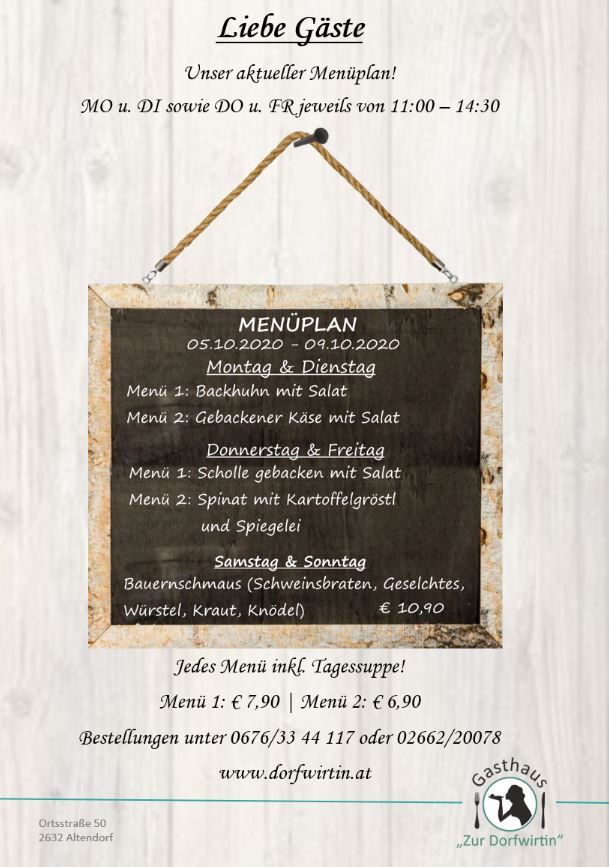 Liebe Gäste
Unser aktueller Menüplan!
MO u. DI sowie DO u. FR jeweils von 11:00 – 14:30
MENÜPLAN
05.10.2020 - 09.10.2020
Montag & Dienstag
Menü 1: Backhuhn mit Salat
Menü 2: Gebackener Käse mit Salat
Donnerstag & Freitag
Menü 1: Scholle gebacken mit Salat
Menü 2: Spinat mit Kartoffelgröstl
und Spiegelei
Samstag & Sonntag
Bauernschmaus (Schweinsbraten, Geselchtes,
Würstel, Kraut, Knödel) € 10,90
Jedes Menü inkl. Tagessuppe!
Menü 1: € 7,90 | Menü 2: € 6,90
Bestellungen unter 0676/33 44 117 oder 02662/20078
www.dorfwirtin.at
Ortsstraße 50
2632 Altendorf
Gasthaus
„Zur Dorfwirtin“